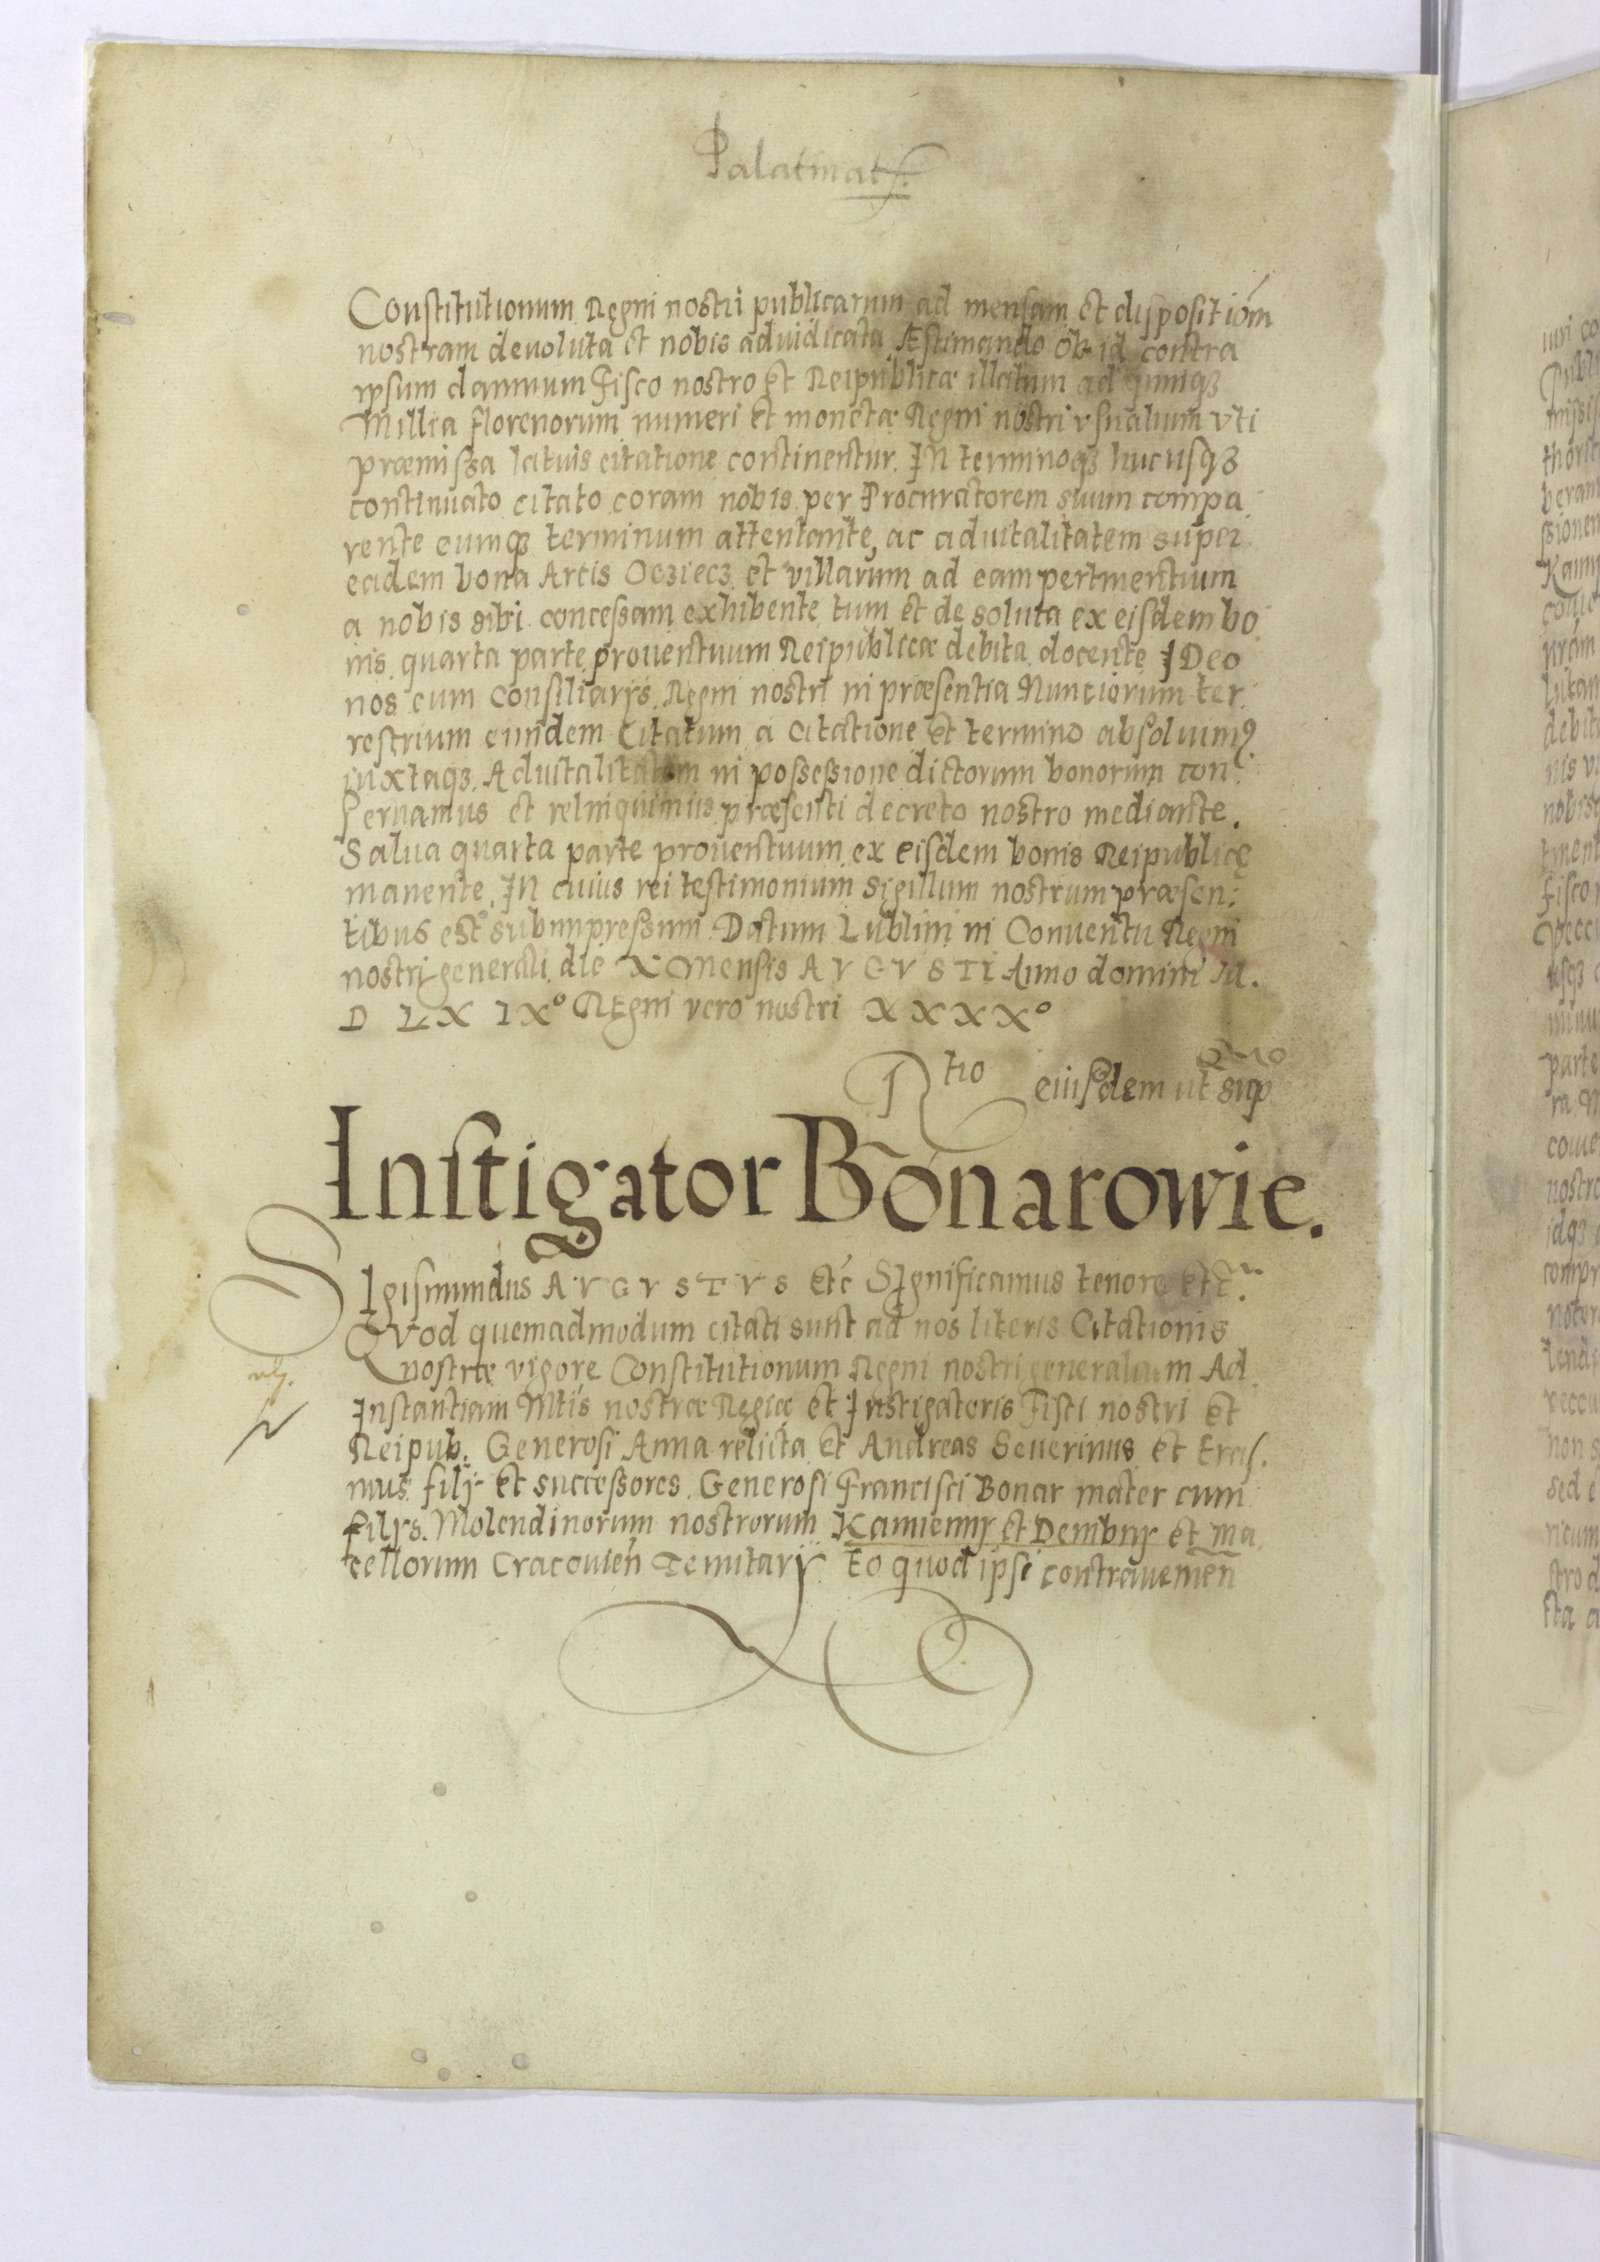 Palatinat.
Constitutionum Regni nostri publicarum ad mensam et dispositiom
nostram devoluta et nobis adiudicata Æstimando ob id contra
ipsum damnum Fisco nostro et Reipublicæ illatum ad quinqȝ
Millia florenorum numeri et monetæ Regni nostri vsualium vti
præmissa latius citatione continentur. In terminoqȝ hucusqȝ
continuato citato coram nobis per Procuratorem suum compa
rente eumqȝ terminum attentante, ac aduitalitatem super
eadem bona Arcis Ocziecz et villarum ad eam pertinentium
a nobis sibi concessam exhibente tum et de soluta ex eisdem bo
nis quarta parte prouentuum Reipublicæ debita docente IDeo
nos cum Consiliarijs Regni nostri in præsentia Nunciorum ter
restrium eundem Citatum a citatione et termino absoluimꝰ
iuxtaqȝ Aduitalitatem in possessione dictorum bonorum con:
seruamus et relinquimus præsenti decreto nostro mediante.
Salua quarta parte prouentuum ex eisdem bonis Reipublicę
manente. In cuius rei testimonium Sigillum nostrum præsen:
tibus est subimpressum Datum Lublini in Conuentu Regni
nostri generali die X Mensis AVGVSTI Anno domini M.
D LX IXº Regni vero nostri XXXXº
Rtio eiusdem ut sup
Instigator Bonarowie.
SIgismundus AVGVSTVS etc SIgnificamus tenore etc.
Quod quemadmodum citati sunt ad nos literis Citationis
nostræ vigore Constitutionum Regni nostri generalium Ad
Instantiam Mtis nostræ Regiæ et Instigatoris Fisci nostri et
Reipub. Generosi Anna relicta et Andreas Seuerinus et Eras.
mus filij et successores Generosi Francisci Bonar mater cum
filijs. Molendinorum nostrorum Kamienny et Dembny et ma
cellorum Cracouien Tenutarij Eo quod ipsi contravenien